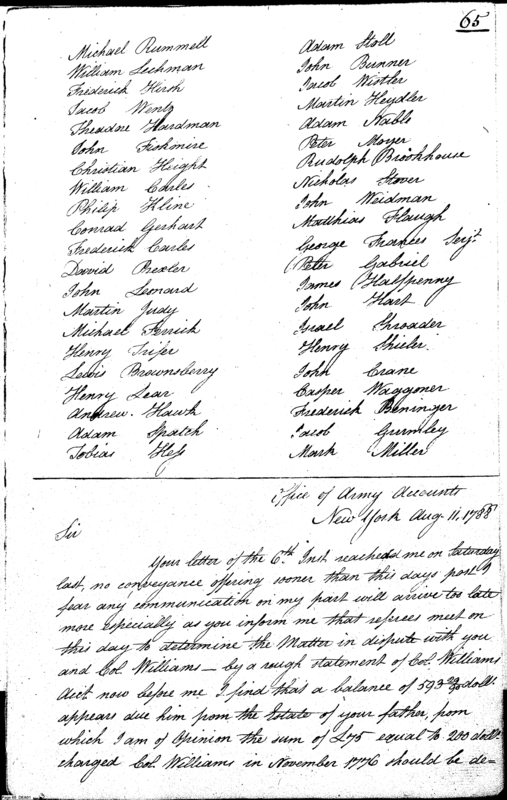 65
Michael Rummell
William Lechman
Frederick Hirsh
Jacob Wentz
Theodore Hardman
John Fishmire
Christian Height
William Carles
Philip Kline
Conrad Gerhart
Frederick Carles
David Brexler
John Leonard
Martin Judy
Michael Ferrick
Henry Trifer
Lewis Brownsberry
Henry Lear
Andrew Hawk
Adam Spatch
Tobias Hess
Adam Stoll
John Bunner
Jacob Wistler
Martin Heydler
Adam Nable
Peter Moyer
Rudolph Brookhouse
Nicholas Stover
John Weidman
Matthias Flaugh
George Frances Serjt.
Peter Gabriel
James Halfpenny
John Hart
Israel Shroader
Henry Shieler
John Crane
Casper Waggoner
Frederick Beninger
Jacob Gurmley
Mark Miller
Office of Army Accounts
New York Aug. 11, 1788
Sir
Your letter of the 6th Inst. reached me on Saturday
last, no conveyance offering sooner than this days post I
fear any communication on my part will arrive too late
more especially as you inform me that referees meet on
this day to determine the Matter in dispute with you
and Col. Williams — by a rough statement of Col. Williams
Acct. now before me I find that a balance of 593 dolls.
appears due him from the Estate of your father, from
which I am of Opinion the sum of £75 equal to 200 dolls.
charged Col. Williams in November 1776 should be de=